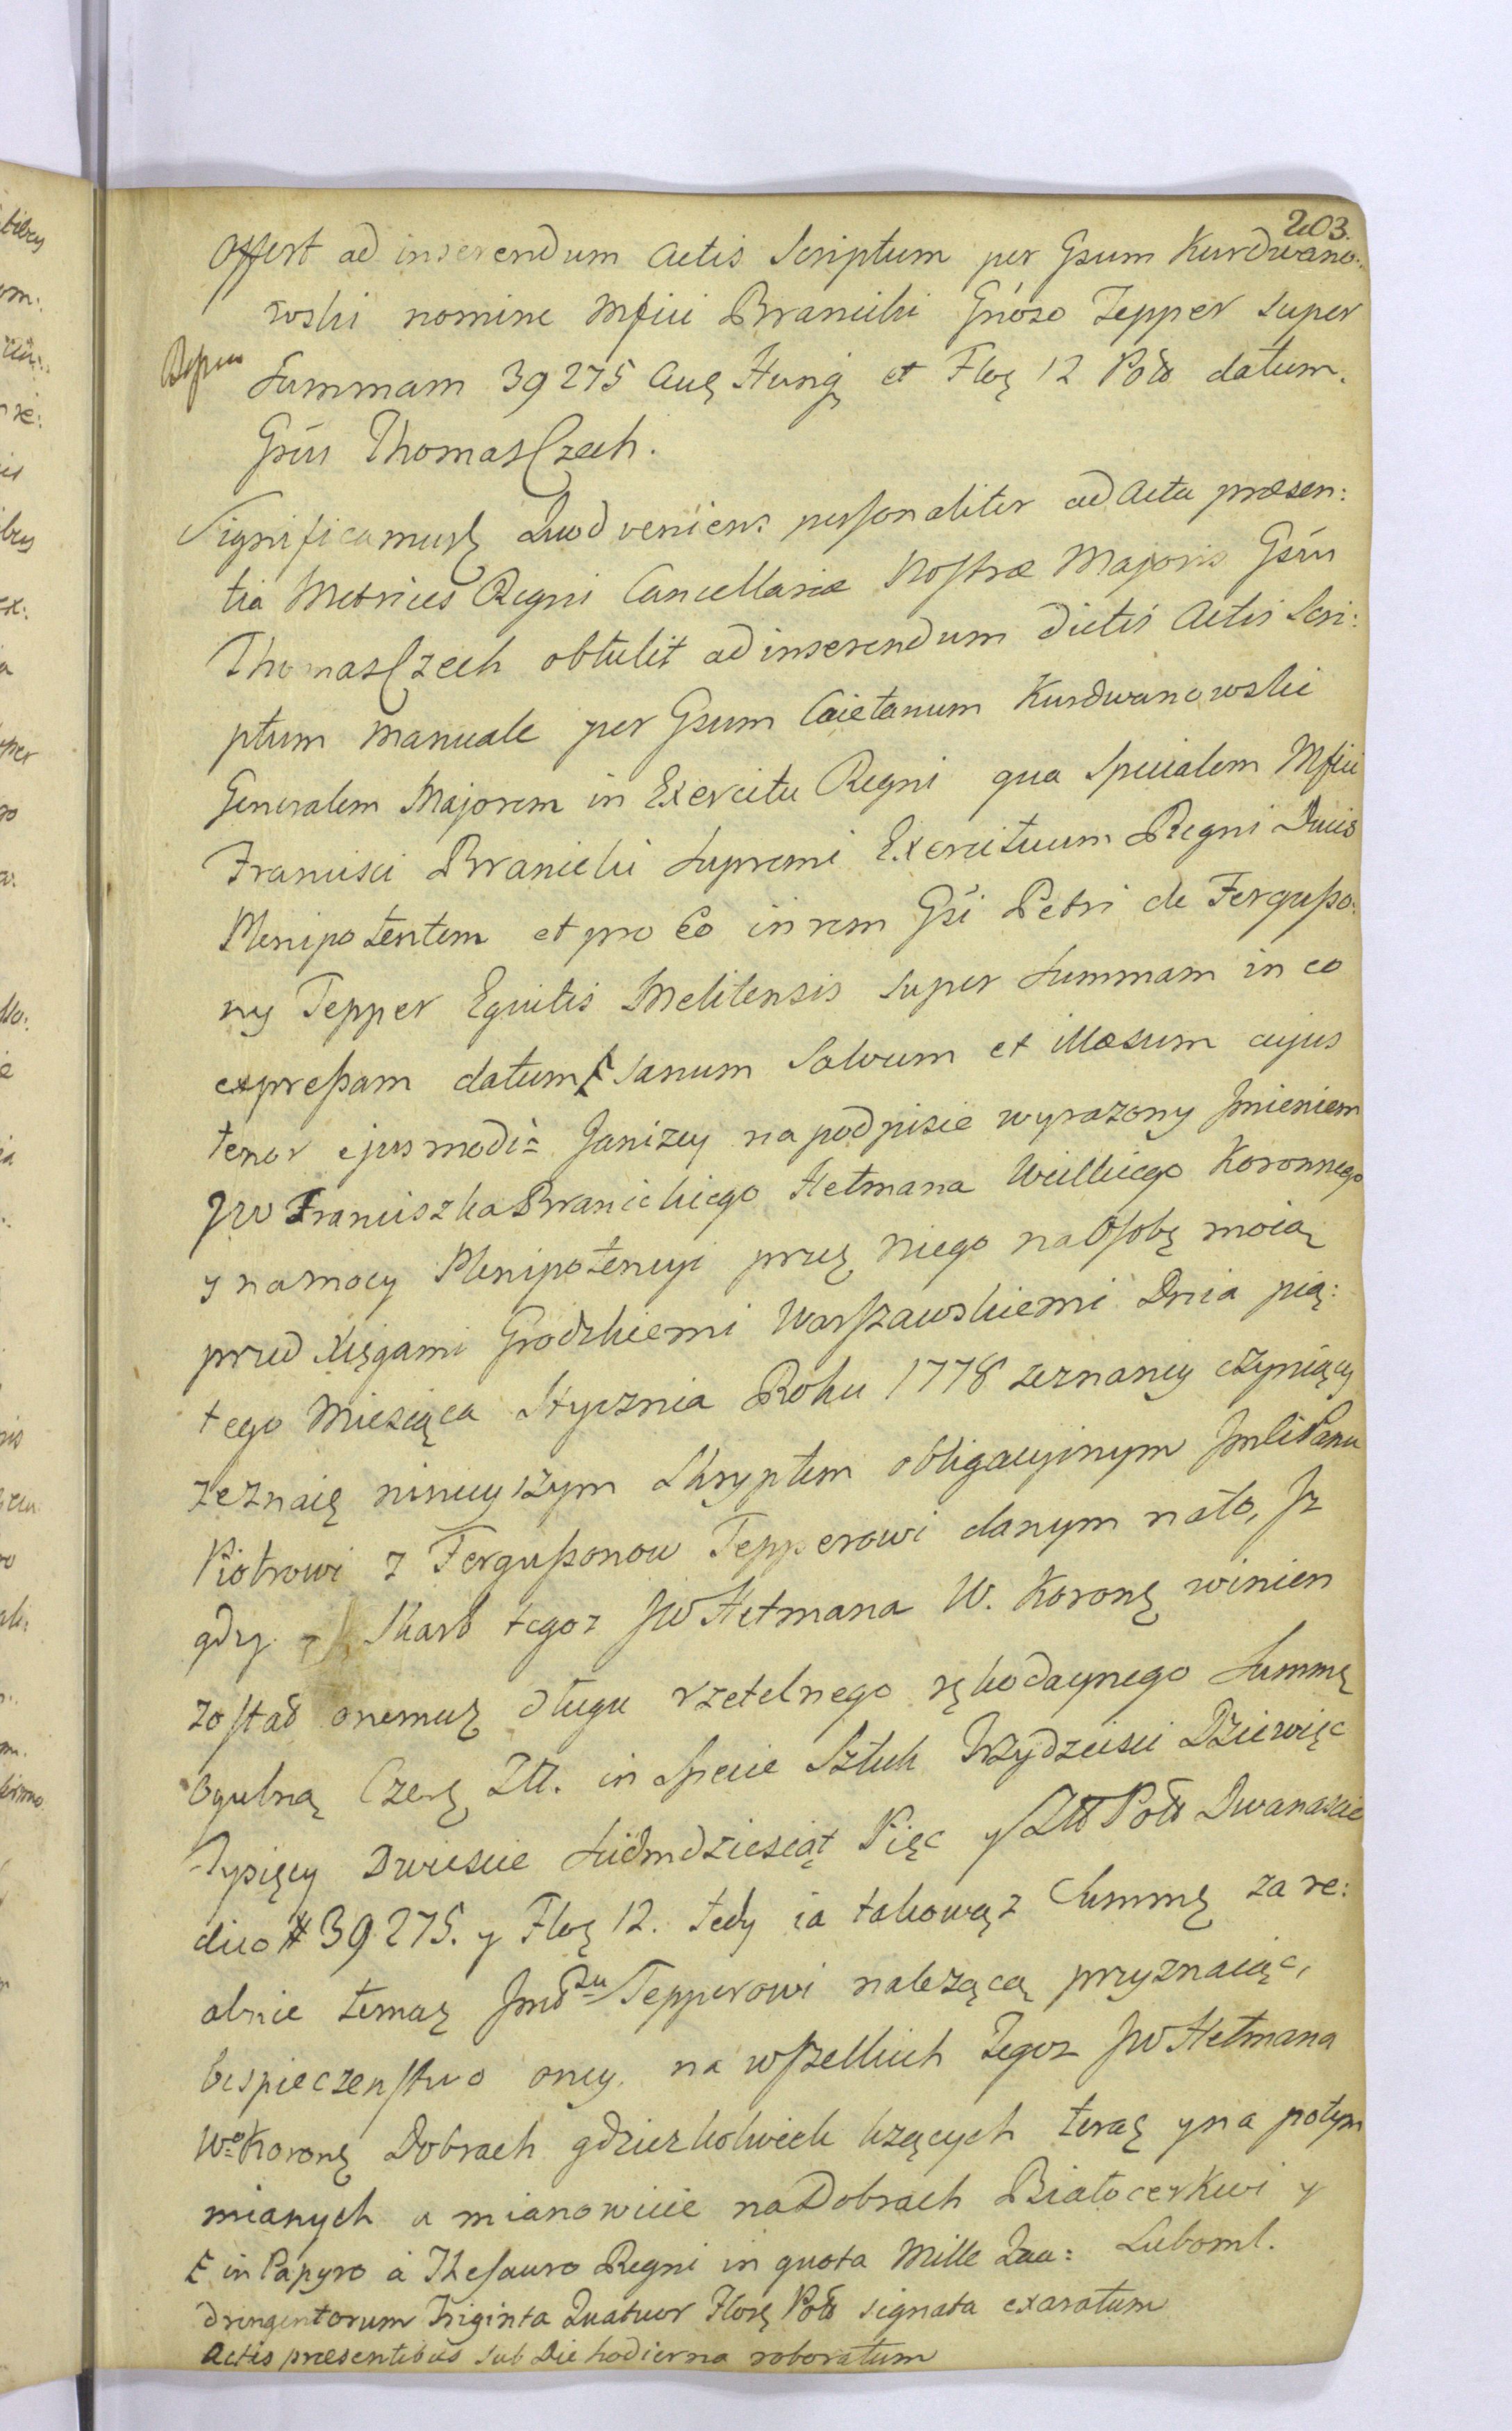 203.
Offert ad inserendum Actis Scriptum per Gsum Kurdwano:
wski nomine Mfici Branicki Gnoso Tepper super
Summam 39275 Aur Hung et Flor 12 Poll datum.
Gsus Thomas Czech.
Significamus Quod veniens personaliter ad Acta præsen:
tia Metrices Regni Cancellariæ Nostræ Majoris Gsus
Thomas Czech obtulit ad inserendum dictis Actis Scri:
ptum manuale per Gsum Caietanum Kurdwanowski
Generalem Majorem in Exercitu Regni qua Specialem Mfici
Francisci Branicki Supremi Exercituum Regni Ducis
Plenipotentem et pro Eo in rem Gsi Petri de Fergusso:
ny Tepper Equitis Melitensis super Summam in eo
expressam datum Ł sanum salvum et illæsum cujus
tenor ejusmodi = Ja niżey na podpisie wyrazony Jmieniem
JW Franciszka Branickiego Hetmana Wielkiego Koronnego
y na mocy Plenipotencyi przez niego na Osobę moią
przed Xięgami Grodzkiemi Warszawskiemi Dnia pią:
tego Miesiąca Stycznia Roku 1778 zeznaney czyniący
zeznaię ninieyszym Skryptem obligacyinym JmCi Panu
Piotrowi z Fergussonow Tepperowi danym na to, Jz
gdy Skarb tegoz JW Hetmana W. Koronę winien
został onemuz długu rzetelnego rękodaynego Summę
ogulną Czerę Złł. in Specie Sztuk Trzydziesci Dziewięc
Tysięcy Dwiescie Siedmdziesiąt Pięc y Złł Poll Dwanascie
dico # 39275. y Flor 12. tedy ia takowąz Summę za re:
alnie temuz Jmć Pnu Tepperowi należącą przyznaiąc,
bespieczenstwo oney na wszelkich tegoz JW Hetmana
W.o Koronę Dobrach gdziezkolwiek lezących teraz y na potym
mianych a mianowicie na Dobrach Białocerkwi y
Luboml.
Ł in Papyro à Thesauro Regni in quota Mille Qua:
dringentorum Triginta Quatuor Flor Poll signata exaratum
Actis præsentibus sub Die hodierna roboratum